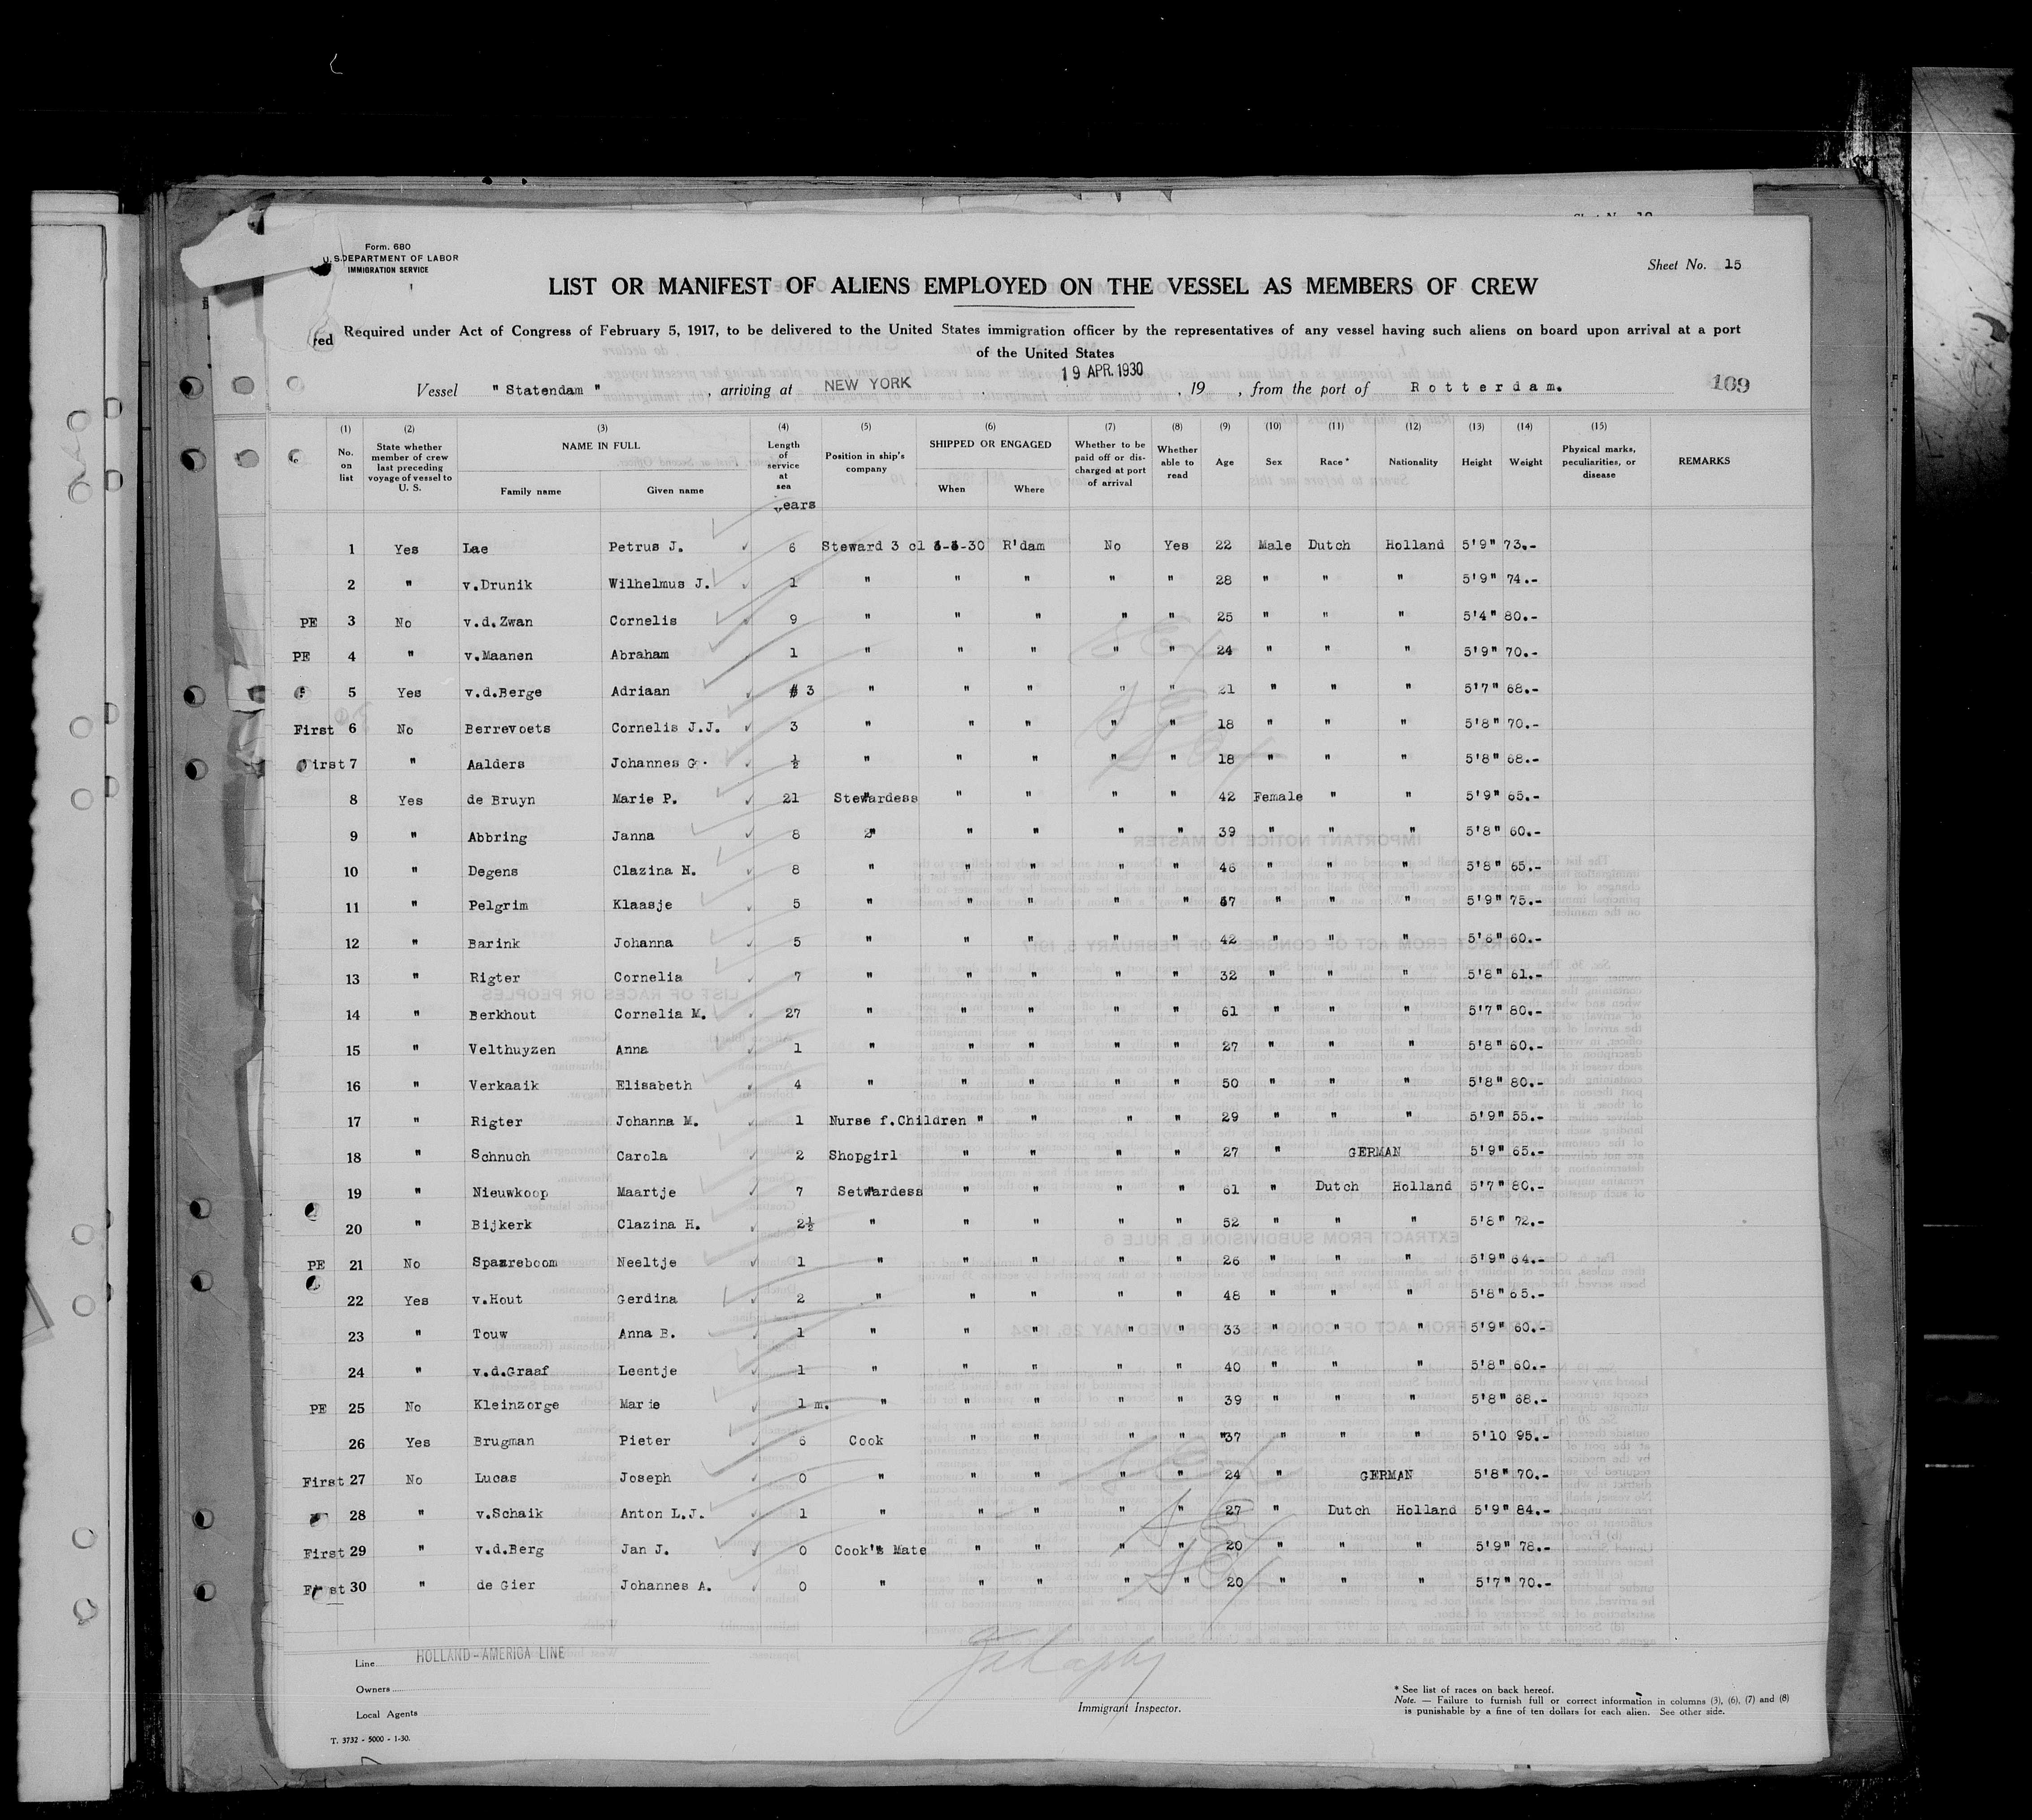 Form. 680
U.S.DEPARTMENT OF LABOR
IMMIGRATION SERVICE
Sheet No. 15
LIST OR MANIFEST OF ALIENS EMPLOYED ON THE VESSEL AS MEMBERS OF CREW
Required under Act of Congress of February 5, 1917, to be delivered to the United States immigration officer by the representatives of any vessel having such aliens on board upon arrival at a port
of the United States
Vessel " Statendam ", arriving at NEW YORK 19 APR. 1930, 19 , from the port of Rotterdam. 109
(1) (2) (3) (4) (5) (6) (7) (8) (9) (10) (11) (12) (13) (14) (15)
No. on list State whether member of crew last preceding voyage of vessel to U. S. NAME IN FULL Family name Given name Length of service at sea Position in ship's company SHIPPED OR ENGAGED When Where Whether to be paid off or discharged at port of arrival Whether able to read Age Sex Race* Nationality Height Weight Physical marks, peculiarities, or disease REMARKS
years
1 Yes Lae Petrus J. 6 Steward 3 cl -30 R'dam No Yes 22 Male Dutch Holland 5'9" 73.-
2 " v.Drunik Wilhelmus J. 1 " " " " " 28 " " " 5'9" 74.-
PE 3 No v.d.Zwan Cornelis 9 " " " " " 25 " " " 5'4" 80.-
PE 4 " v.Maanen Abraham 1 " " " " " 24 " " " 5'9" 70.-
5 Yes v.d.Berge Adriaan 3 " " " " " 21 " " " 5'7" 68.-
First 6 No Berrevoets Cornelis J.J. 3 " " " " " 18 " " " 5'8" 70.-
First 7 " Aalders Johannes G. ½ " " " " " 18 " " " 5'8" 68.-
8 Yes de Bruyn Marie P. 21 Stewardess " " " " 42 Female " " 5'9" 65.-
9 " Abbring Janna 8 " " " " " 39 " " " 5'8" 60.-
10 " Degens Clazina H. 8 " " " " " 46 " " " 5'8" 65.-
11 " Pelgrim Klaasje 5 " " " " " 47 " " " 5'9" 75.-
12 " Barink Johanna 5 " " " " " 42 " " " 5'6" 60.-
13 " Rigter Cornelia 7 " " " " " 32 " " " 5'8" 61.-
14 " Berkhout Cornelia M. 27 " " " " " 61 " " " 5'7" 80.-
15 " Velthuyzen Anna 1 " " " " " 27 " " " 5'8" 60.-
16 " Verkaaik Elisabeth 4 " " " " " 50 " " " 5'8" 80.-
17 " Rigter Johanna M. 1 Nurse f.Children " " " " 29 " " " 5'9" 55.-
18 " Schnuch Carola 2 Shopgirl " " " " 27 " GERMAN 5'9" 65.-
19 " Nieuwkoop Maartje 7 Setwardess " " " " 61 " Dutch Holland 5'7" 80.-
20 " Bijkerk Clazina H. 2½ " " " " " 52 " " " 5'8" 72.-
PE 21 No Spaareboom Neeltje 1 " " " " " 26 " " " 5'9" 64.-
22 Yes v.Hout Gerdina 2 " " " " " 48 " " " 5'8" 65.-
23 " Touw Anna B. 1 " " " " " 33 " " " 5'9" 60.-
24 " v.d.Graaf Leentje 1 " " " " " 40 " " " 5'8" 60.-
PE 25 No Kleinzorge Marie 1 m. " " " " " 39 " " " 5'8" 68.-
26 Yes Brugman Pieter 6 Cook " " " " 37 " " " 5'10 95.-
First 27 No Lucas Joseph 0 " " " " " 24 " GERMAN 5'8" 70.-
28 " v.Schaik Anton L.J. 1 " " " " " 27 " Dutch Holland 5'9" 84.-
First 29 " v.d.Berg Jan J. 0 Cook's Mate " " " " 20 " " " 5'9" 78.-
First 30 " de Gier Johannes A. 0 " " " " " 20 " " " 5'7" 70.-
Line HOLLAND-AMERICA LINE
Owners
Local Agents
Immigrant Inspector.
* See list of races on back hereof.
Note. — Failure to furnish full or correct information in columns (3), (6), (7) and (8)
is punishable by a fine of ten dollars for each alien. See other side.
T. 3732 - 5000 - 1-30.